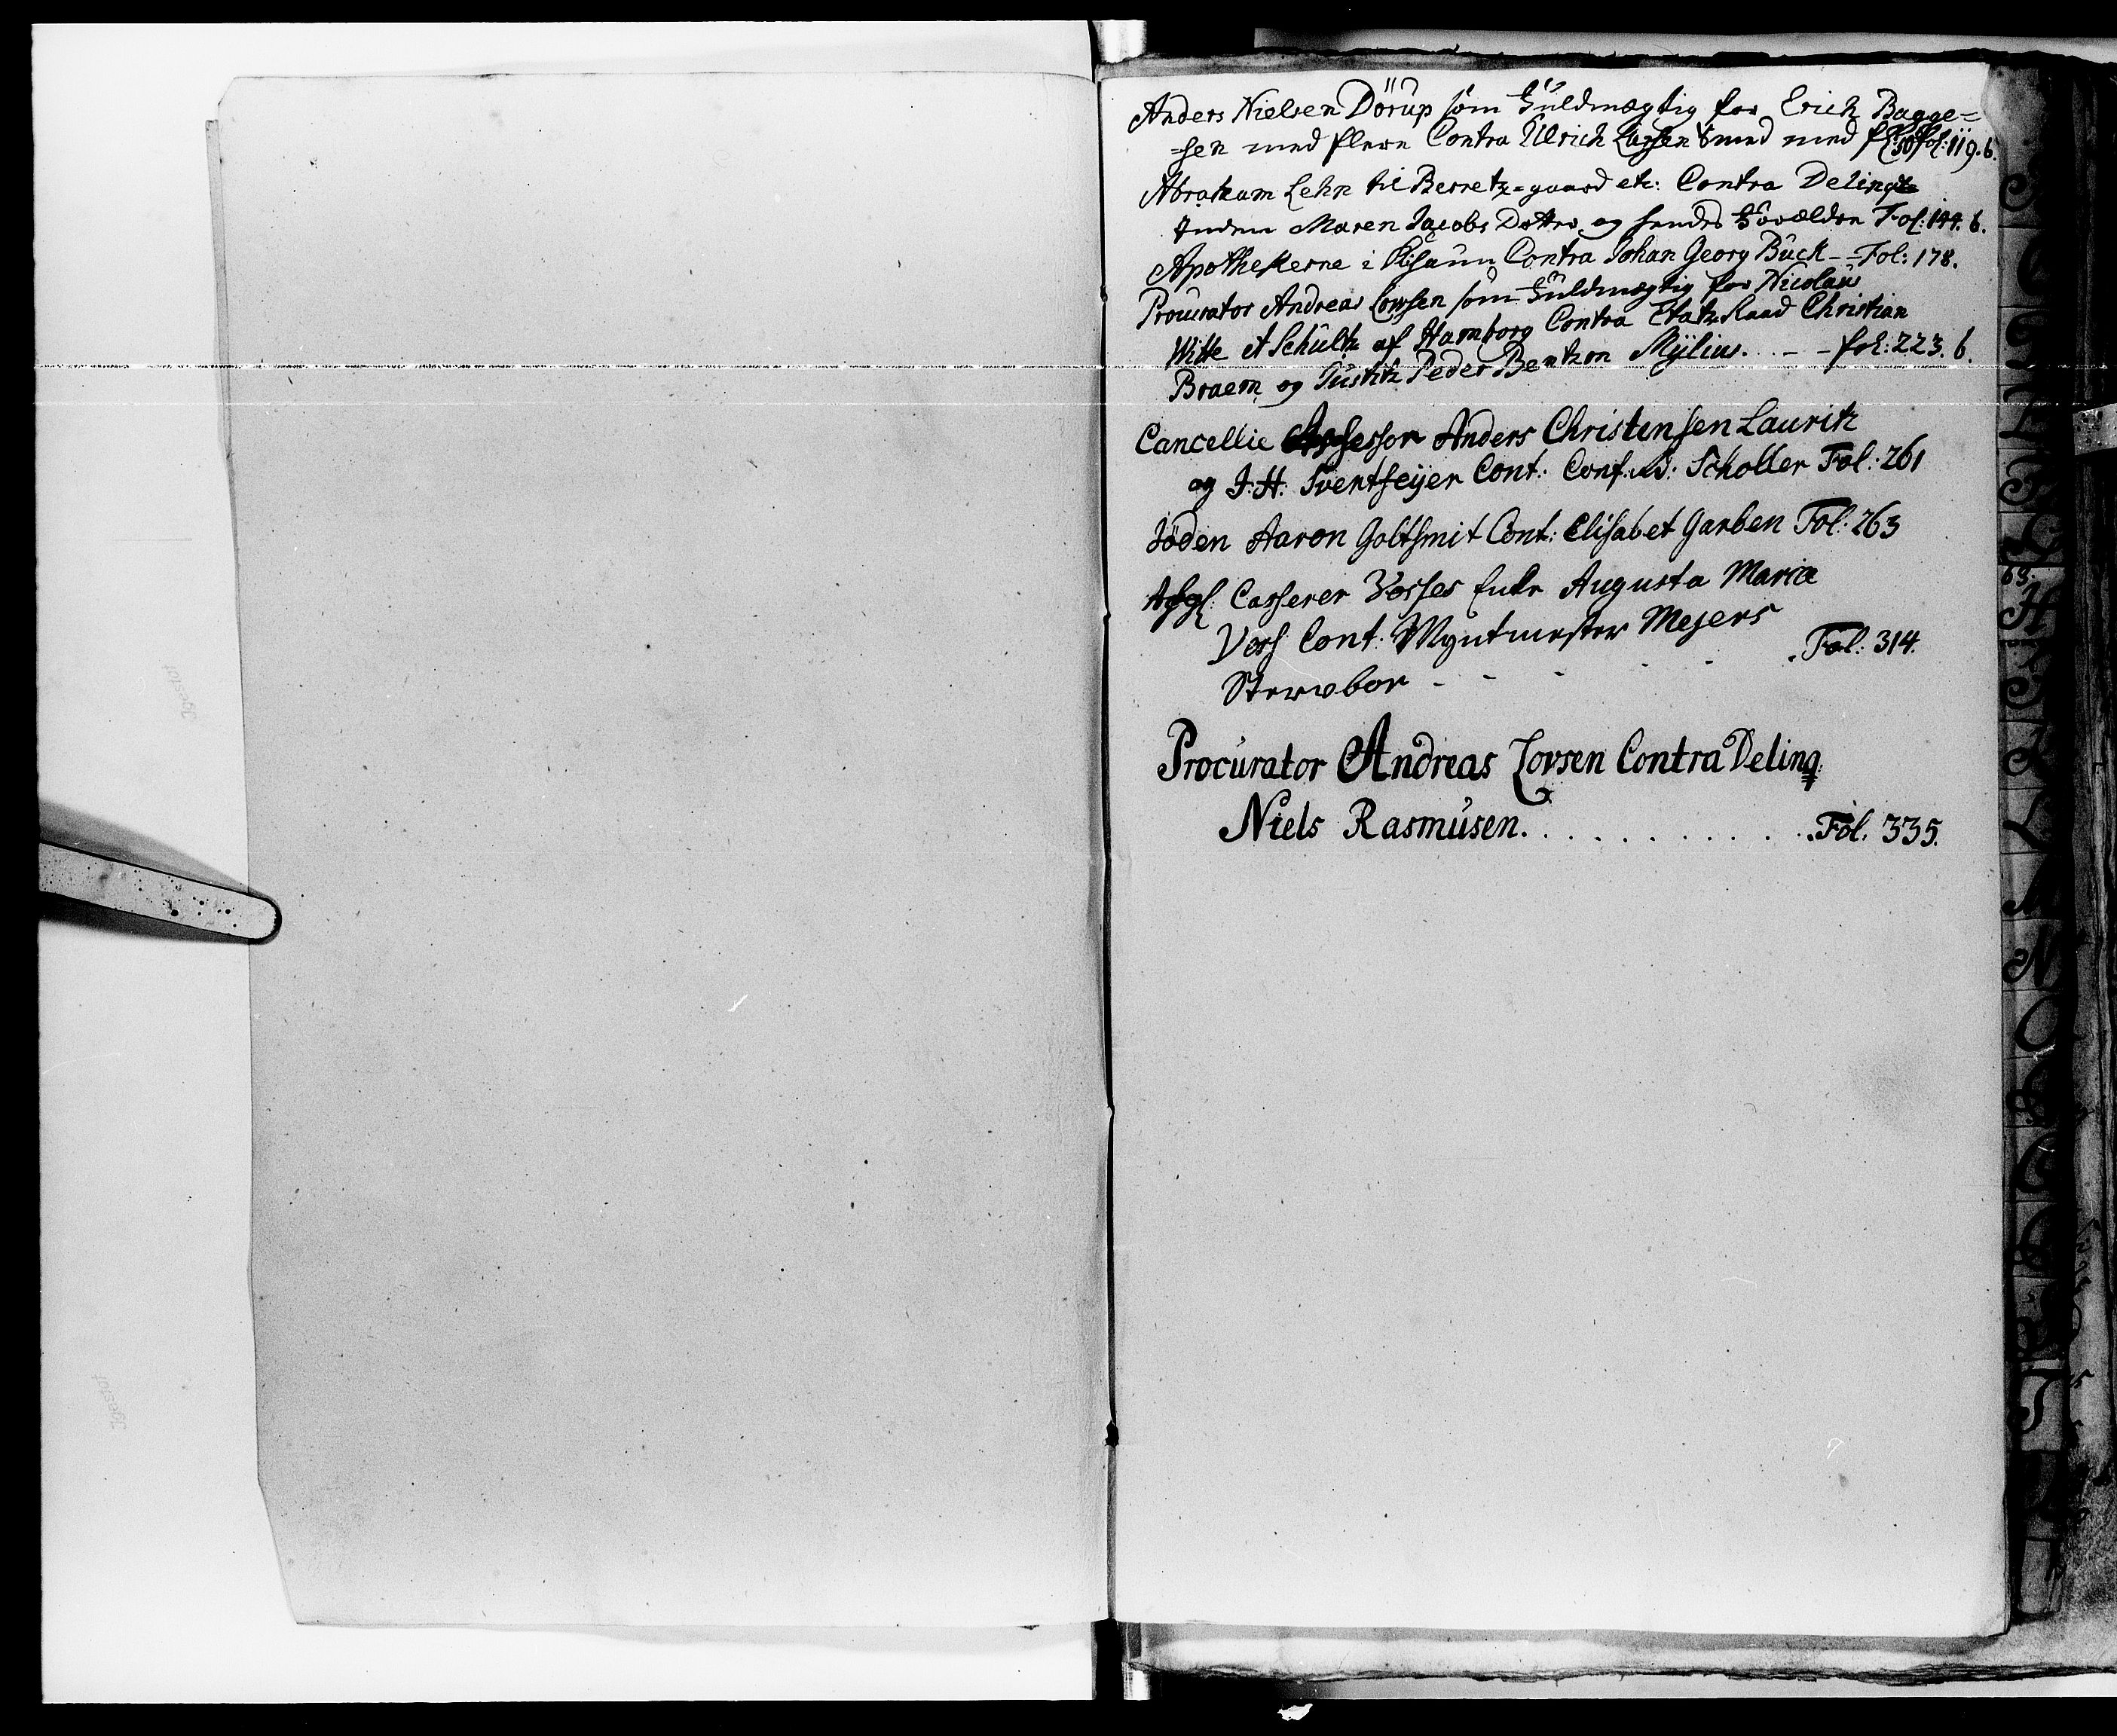 Anders Nielsen Dörup som Fuldmægtig for Erich Bagge=
=sen med flere Contra Ulrich Larsen Smed med fl: fol: 119. b.
Abraham Lehn til Berretz=gaard etc: Contra Delinqv
Inden Maren Jacobs Datter og hendes Forældre Fol: 144. b.
Apothekerne i Contra Johan Georg Buck - - Fol: 178.
Procurator Andreas Lowsen som Fuldmægtig for Nicolaus
Witte & Schultz af Hamborg Contra Etatz Raad Christian
Braem og Justitz Peder Bentzon Mÿlius. . . - - fol: 223. b.
Cancellie Assessor Anders Christensen Lauritz
og J. H. Sventseÿer Cont: Conf. Scholler Fol: 261
Jöden Aaron Goltsmit Cont: Elisabet Garben Fol: 263
Afgl: Casserer Vosses Enke Augusta Maria
Voss Cont: Myntmester Mejers
Sterwboe - - - - - Fol: 314.
Procurator Andreas Lovsen Contra Delinq:
Niels Rasmusen. . . . . . . . . . Fol. 335.